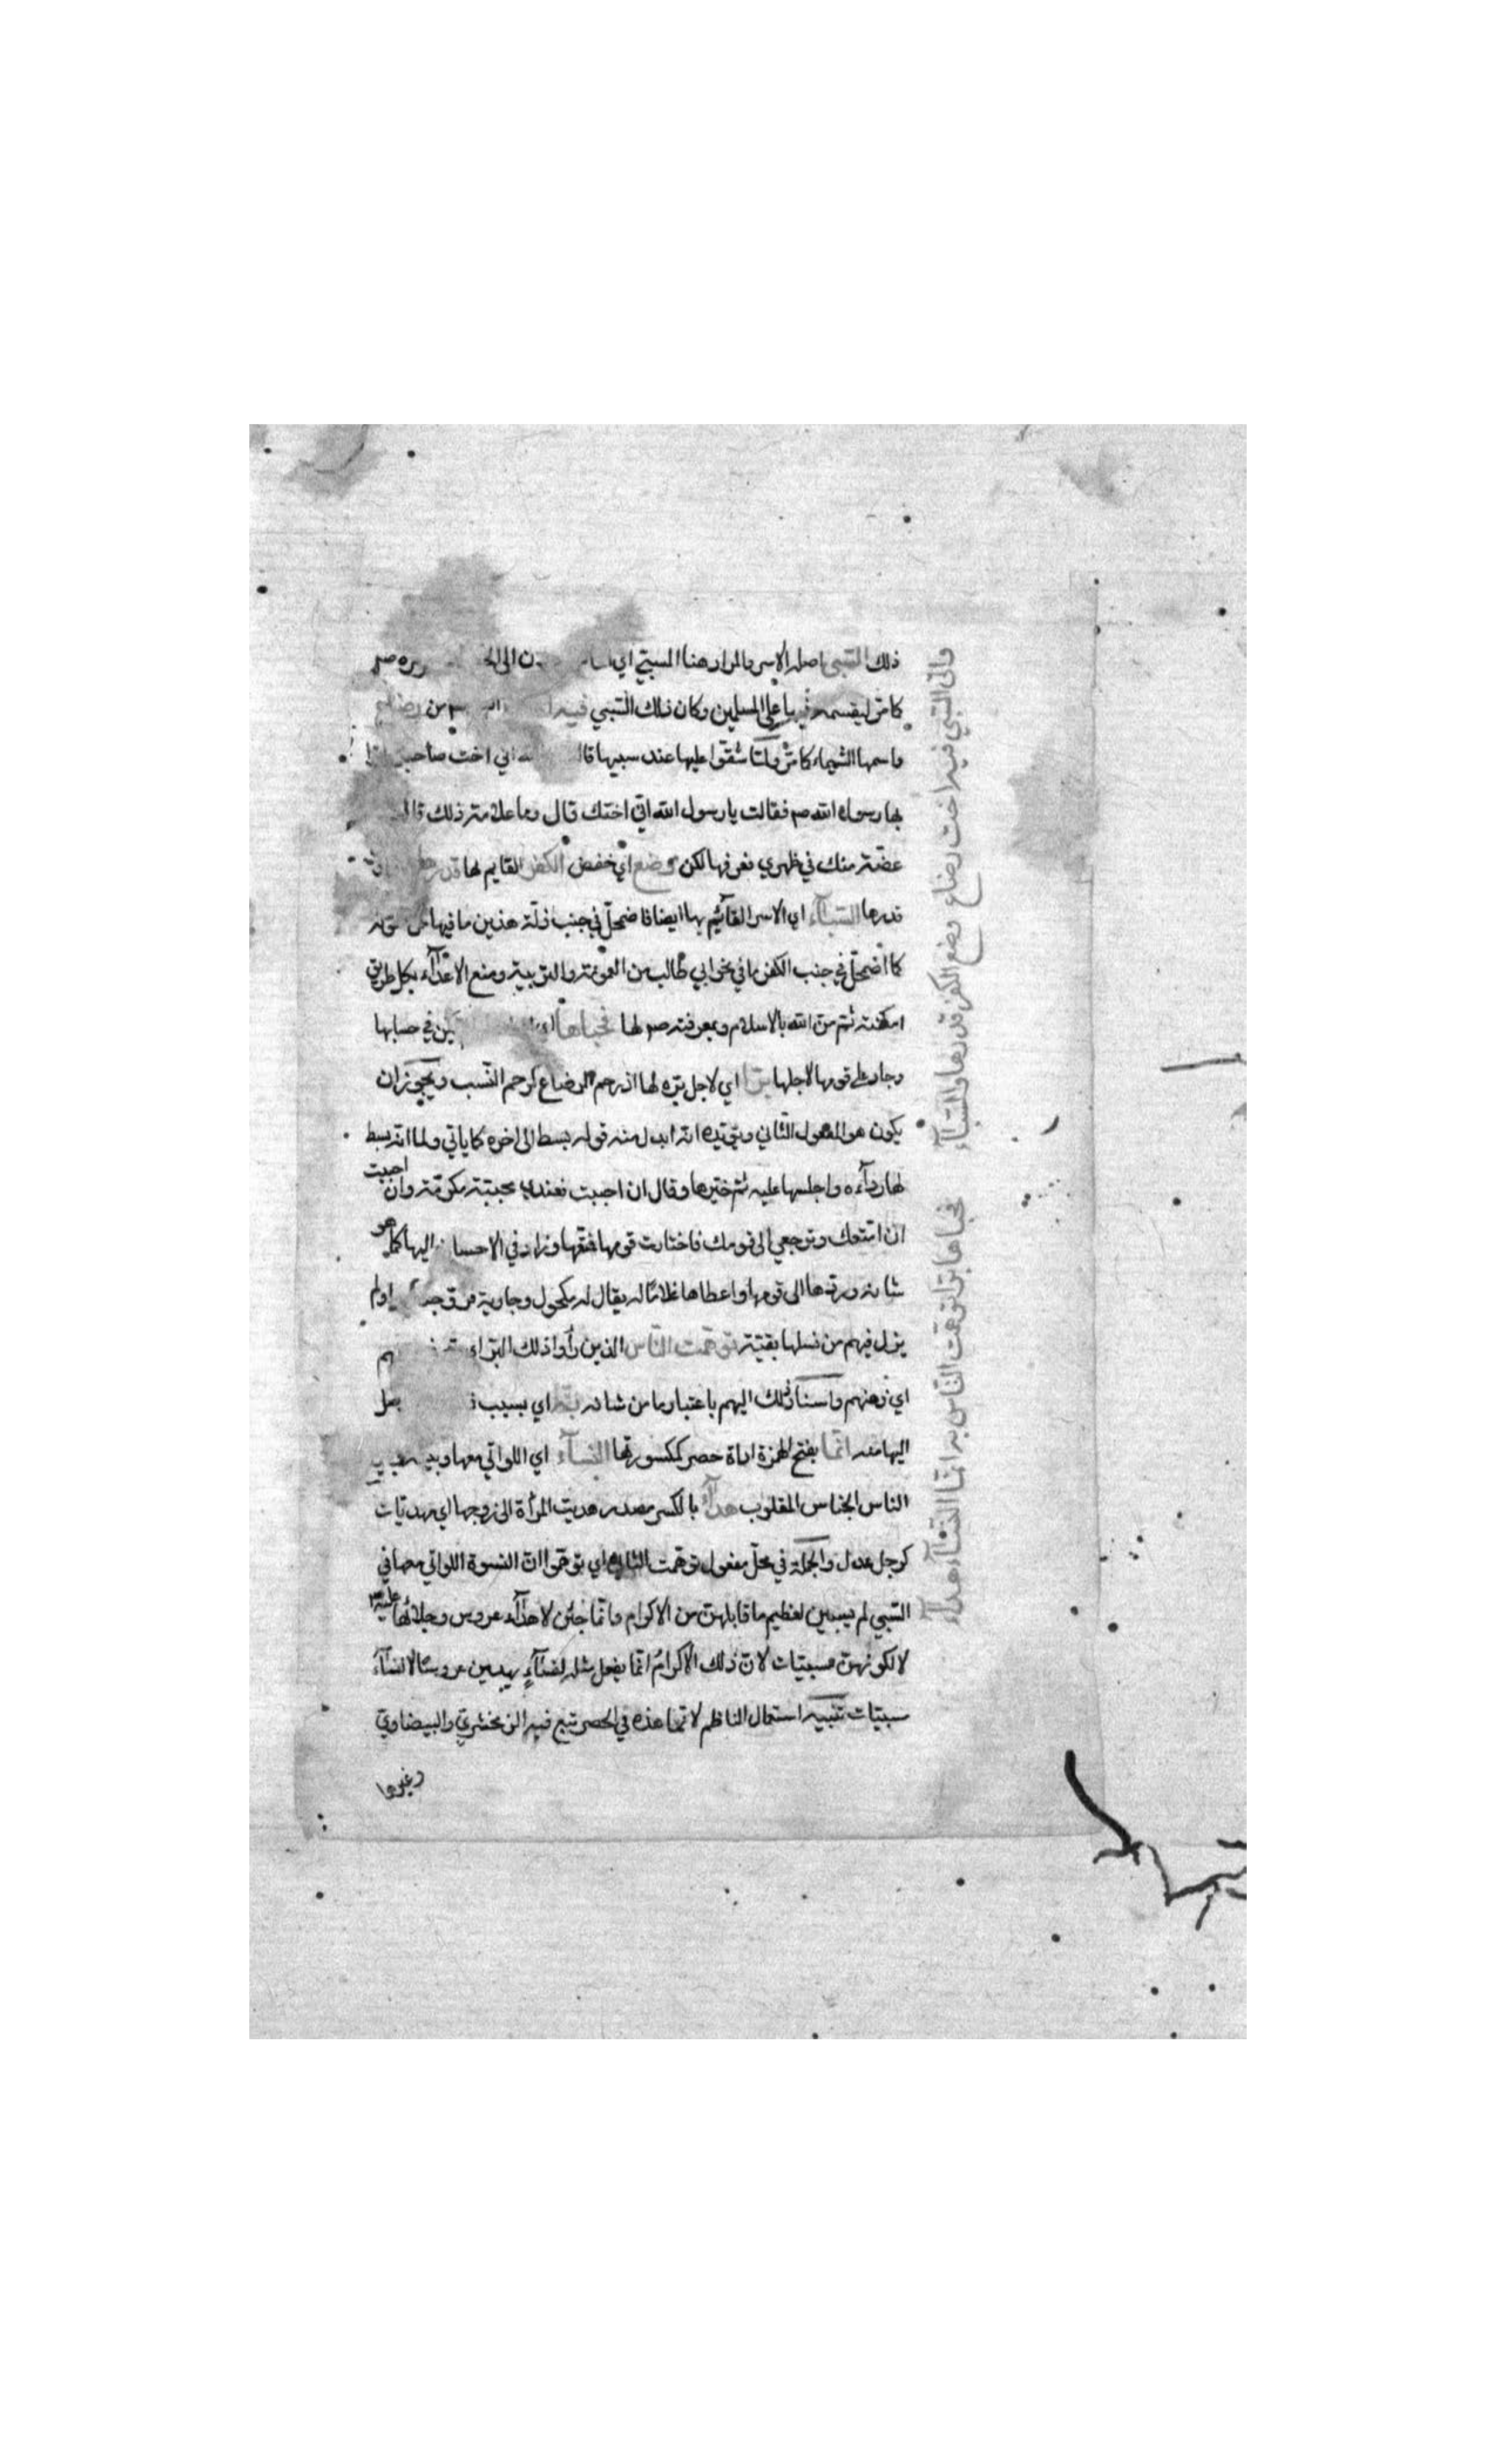 ذلك السبي اصله الاسر والمراد هنا المسبي اي
كما مر ليقسمه فيها على المسلمين وكان ذلك السبي فيه من رضاع
واسمها الشيماء كما مر ولما شقوا عليها عند سبيها اني اخت صاحبكم
بها رسول الله صم فقالت يا رسول الله اني اختك قال وما علامة ذلك قالت
عضة منك في ظهري فعرفها لكن وضع اي خفض الكفر القايم لها قدرها
قدرها السبآء اي الاسر القآئم بها ايضا فاضمحل في جنب ذلة هذين ما فيها من
كما اضمحل في جنب الكفر ما في نحو ابي طالب من العمومة والتربية ومنع الاعدآء بكل طريق
امكنته ثم من الله بالاسلام وبمعرفته صم لها فحباها اي في حسابها
وجاد على قومها لاجلها برا اي لاجل بره لها اذ رحم الرضاع كرحم النسب ويجوز ان
يكون هو المفعول الثاني ويؤيده انه ابدل منه قوله بسط الى اخره كما ياتي ولما انه بسط
لها ردآءه واجلسها عليه ثم خيرها وقال ان احببت فعندي محببة مكرمة وان احببت
ان امتعك وترجعي الى قومك فاختارت قومها فمتعها وزاد في الاحسان اليها كما هو
شانه وردها الى قومها واعطاها غلاما له يقال له مكحول وجارية فزوجه اولم
يزل فيهم من نسلها بقية توهمت الناس الذين رأوا ذلك البر
اي ذهنهم واسناد ذلك اليهم باعتبار ما من شانه به اي بسبب
اليها منه انما بفتح الهمزة اداة حصر كمكسورتها النسآء اي اللواتي معها وبين
الناس الجناس المقلوب هدآء بالكسر مصدر هديت المرأة الى زوجها اي مهديات
كرجل عدل والجملة في محل مفعول توهمت الناس اي توهموا ان النسوة اللواتي معها في
السبي لم يسبين لعظيم ما قابلهن من الاكرام وانما جئن لاهدآء عروس وجلائها عليه
لا لكونهن مسبيات لان ذلك الاكرام انما يفعل مثله لنسآء يهدين عروسا لا لنسآء
سبيات تنبيه استعمال الناظم لانما هذه في الحصر تبع فيه الزمخشري والبيضاوي
وغيرها
واتى السبي فيه اخت رضاع وضع الكفر قدرها والسبآء
فحباها برا توهمت الناس به انما النسآء هدآء